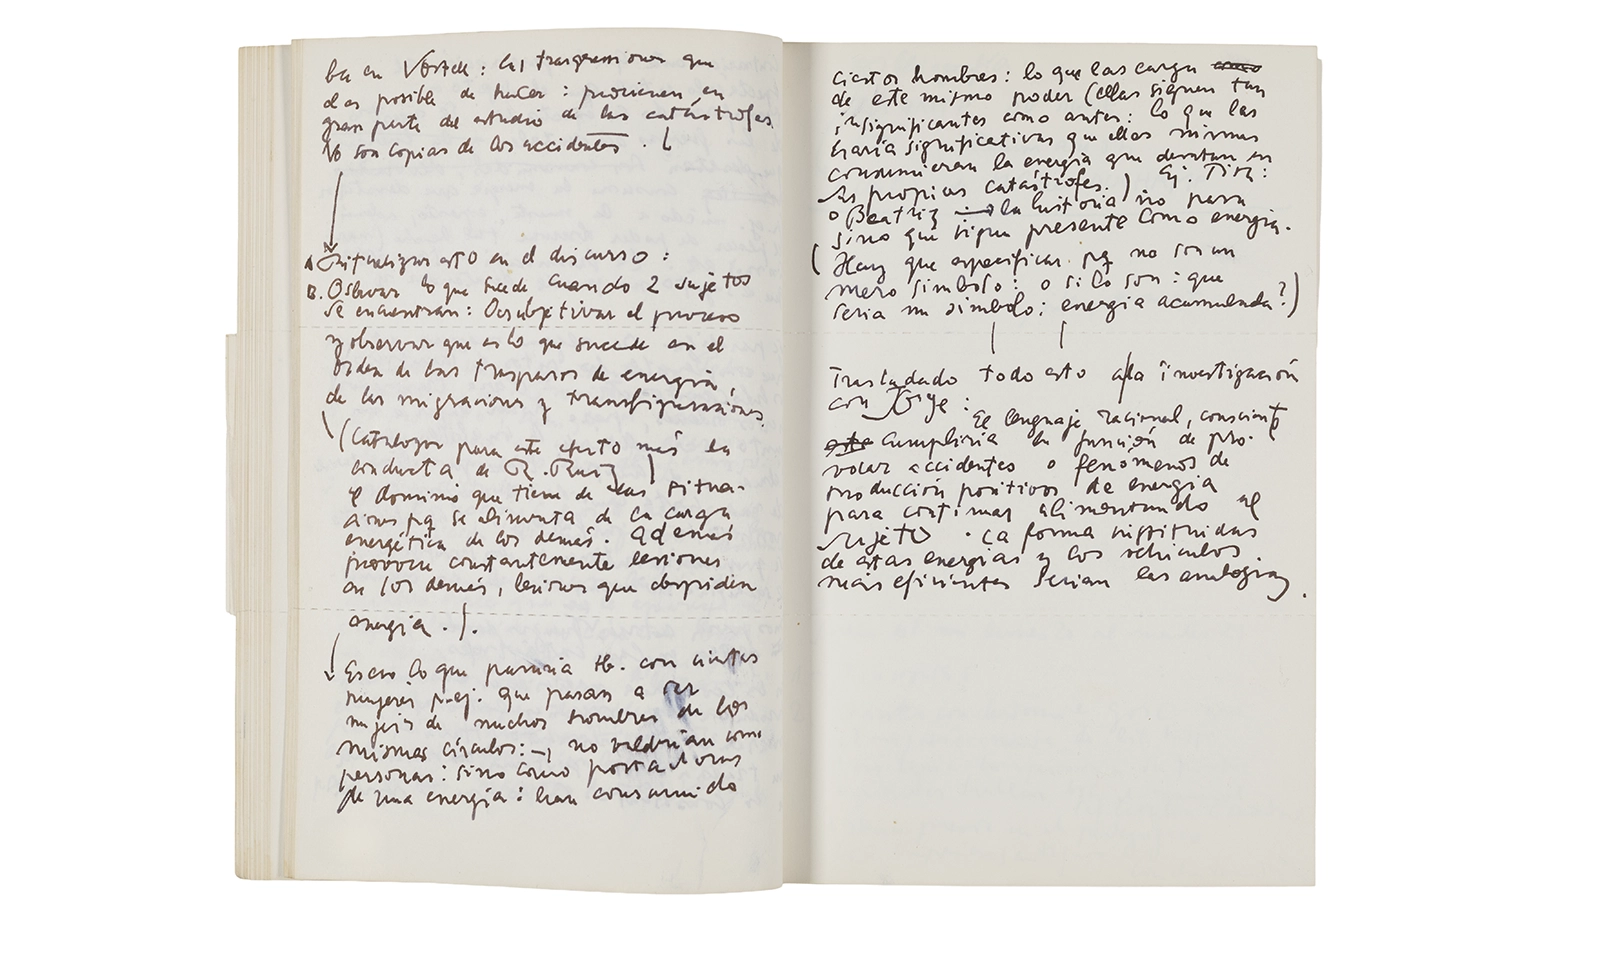 ba en Vostell: las trasgresiones que
él es posible de hacer: provienen en
gran parte del estudio de las catástrofes.
No son copias de los accidentes.
A. Ritualizar esto en el discurso:
B. Observar lo que sucede cuando 2 sujetos
se encuentran: Desubjetivar el proceso
y observar que es lo que sucede en el
orden de los traspasos de energía,
de las migraciones y transfiguraciones.
(Catalogar para este efecto más la
conducta de R. Ruiz)
el dominio que tiene de las situa-
ciones pq se alimenta de la carga
energética de los demás. Además
provoca constantemente lesiones
en los demás, lesiones que despiden
energía.).
Eso es lo que pasaría tb. con ciertas
mujeres p.ej. que pasan a ser
mujeres de muchos hombres de los
mismos círculos: no valdrían como
personas: sino como portadoras
de una energía: han consumido
ciertos hombres: lo que las carga como
de este mismo poder (ellas siguen tan
insignificantes como antes: lo que las
haría significativas que ellas mismas
consumieran la energía que desatan en
las propias catástrofes.) Ej. Tita:
o Beatriz → la historia no pasa
sino que sigue presente como energía.
(Hay que especificar pq no son un
mero símbolo: o si lo son: que
sería un símbolo: energía acumulada?)
Trasladado todo esto a la investigación
con Jorge:
El lenguaje racional, consciente
este cumpliría la función de pro-
vocar accidentes o fenómenos de
producción positivos de energía
para continuar alimentando al
sujeto. La forma sustituidas
de estas energías y los vehículos
más eficientes serían las analogías.